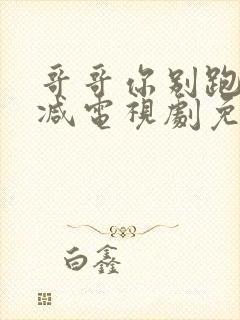 哥哥你别跑
减电視劇免
白鑫